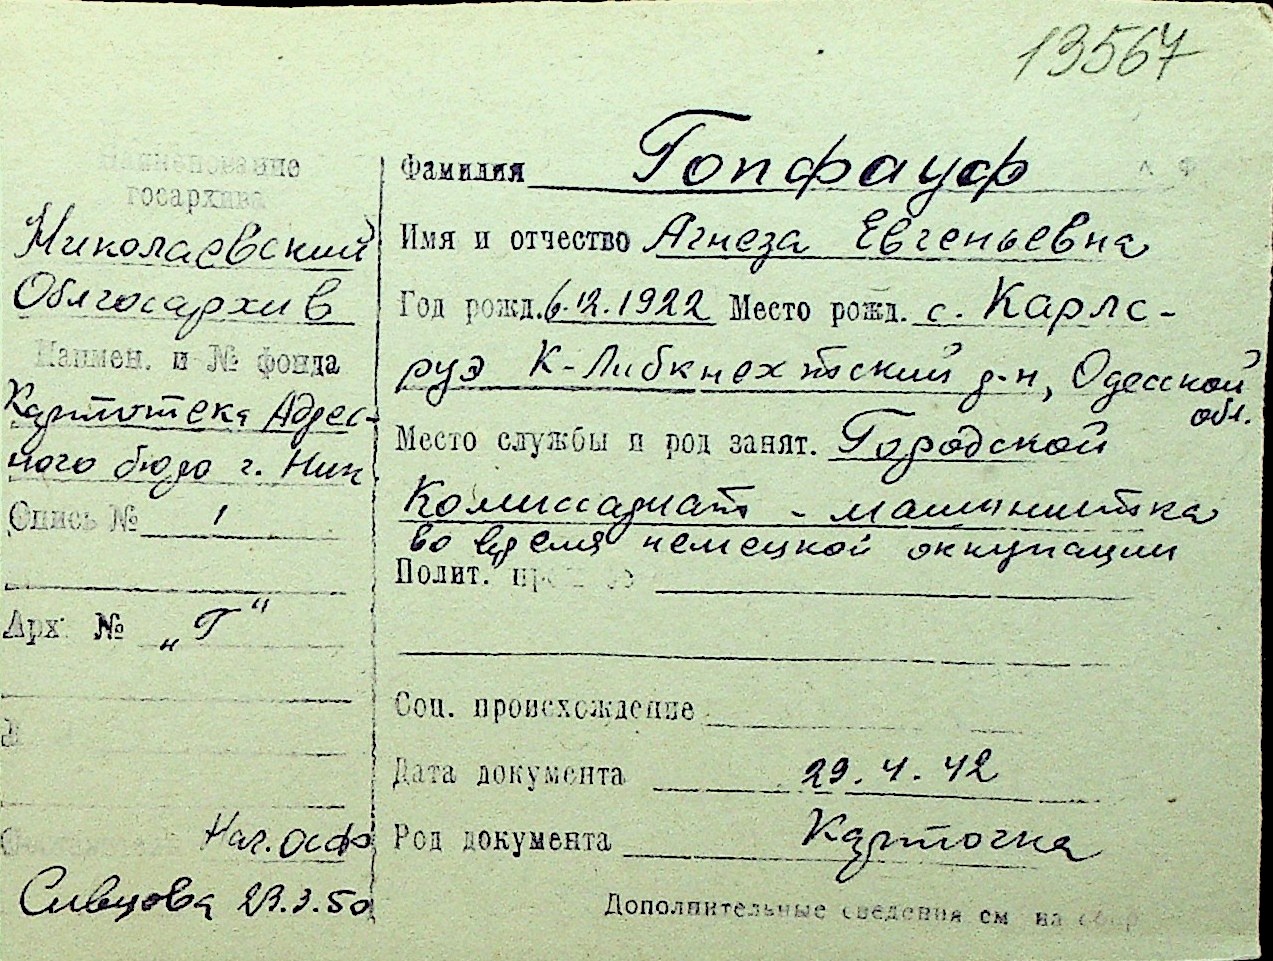 13567
Наименование
госархива
Николаевский
Облгосархив
Наимен. и № фонда
Картотека Адрес-
ного бюро г. Ник.
Опись № 1
Арх. № „Г"
Нач. осф
Сивцова 23.3.50
Фамилия Гопфауф
Имя и отчество Агнеза Евгеньевна
Год рожд. 6.12.1922 Место рожд. с. Карлс-
руэ К-Либкнехтский р-н, Одесской
обл.
Место службы и род занят. Городской
Комиссариат - машинистка
во время немецкой оккупации
Полит.
Соц. происхождение
Дата документа 29.4.42
Род документа Карточка
Дополнительные сведения см на обор